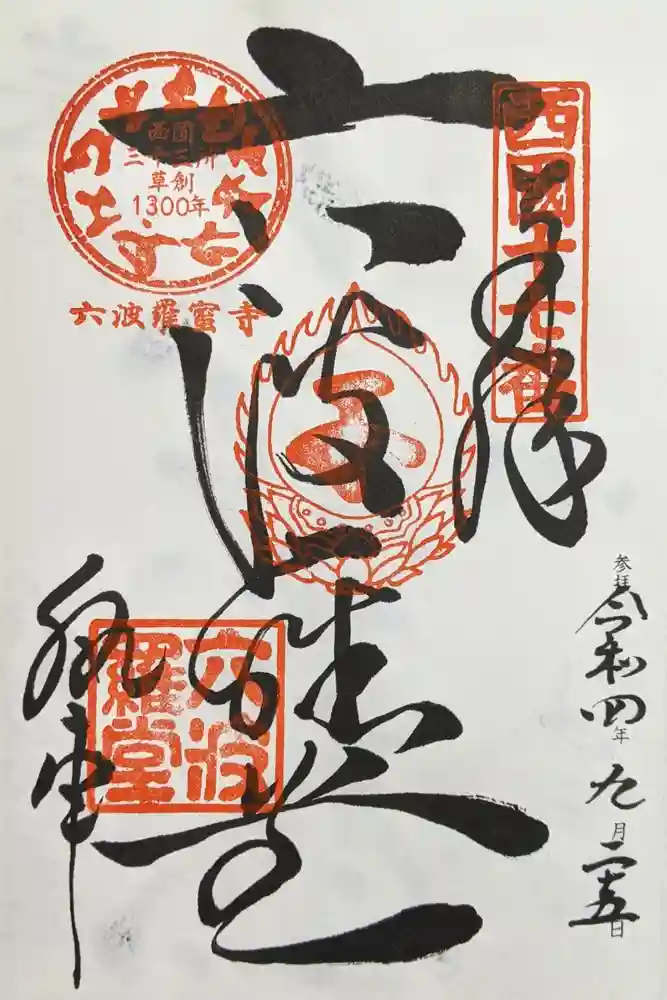 西國十七番
奉拝
参拝
令和四年九月二十五日
六波羅堂
西国
三十三所
草創
1300年
六波羅蜜寺
六波
羅堂
執事